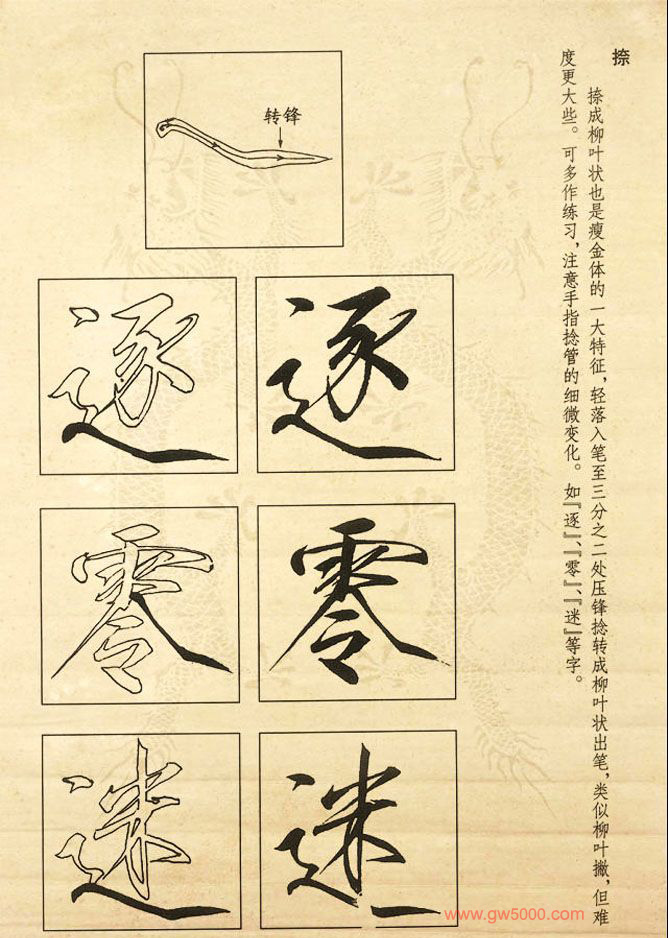 捺
捺成柳叶状也是瘦金体的一大特征，轻落入笔至三分之二处压锋捻转成柳叶状出笔，类似柳叶撇，但难
度更大些。可多作练习，注意手指捻管的细微变化。如『逐』、『零』、『迷』等字。
转锋
逐
逐
零
零
迷
迷
www.gw5000.com